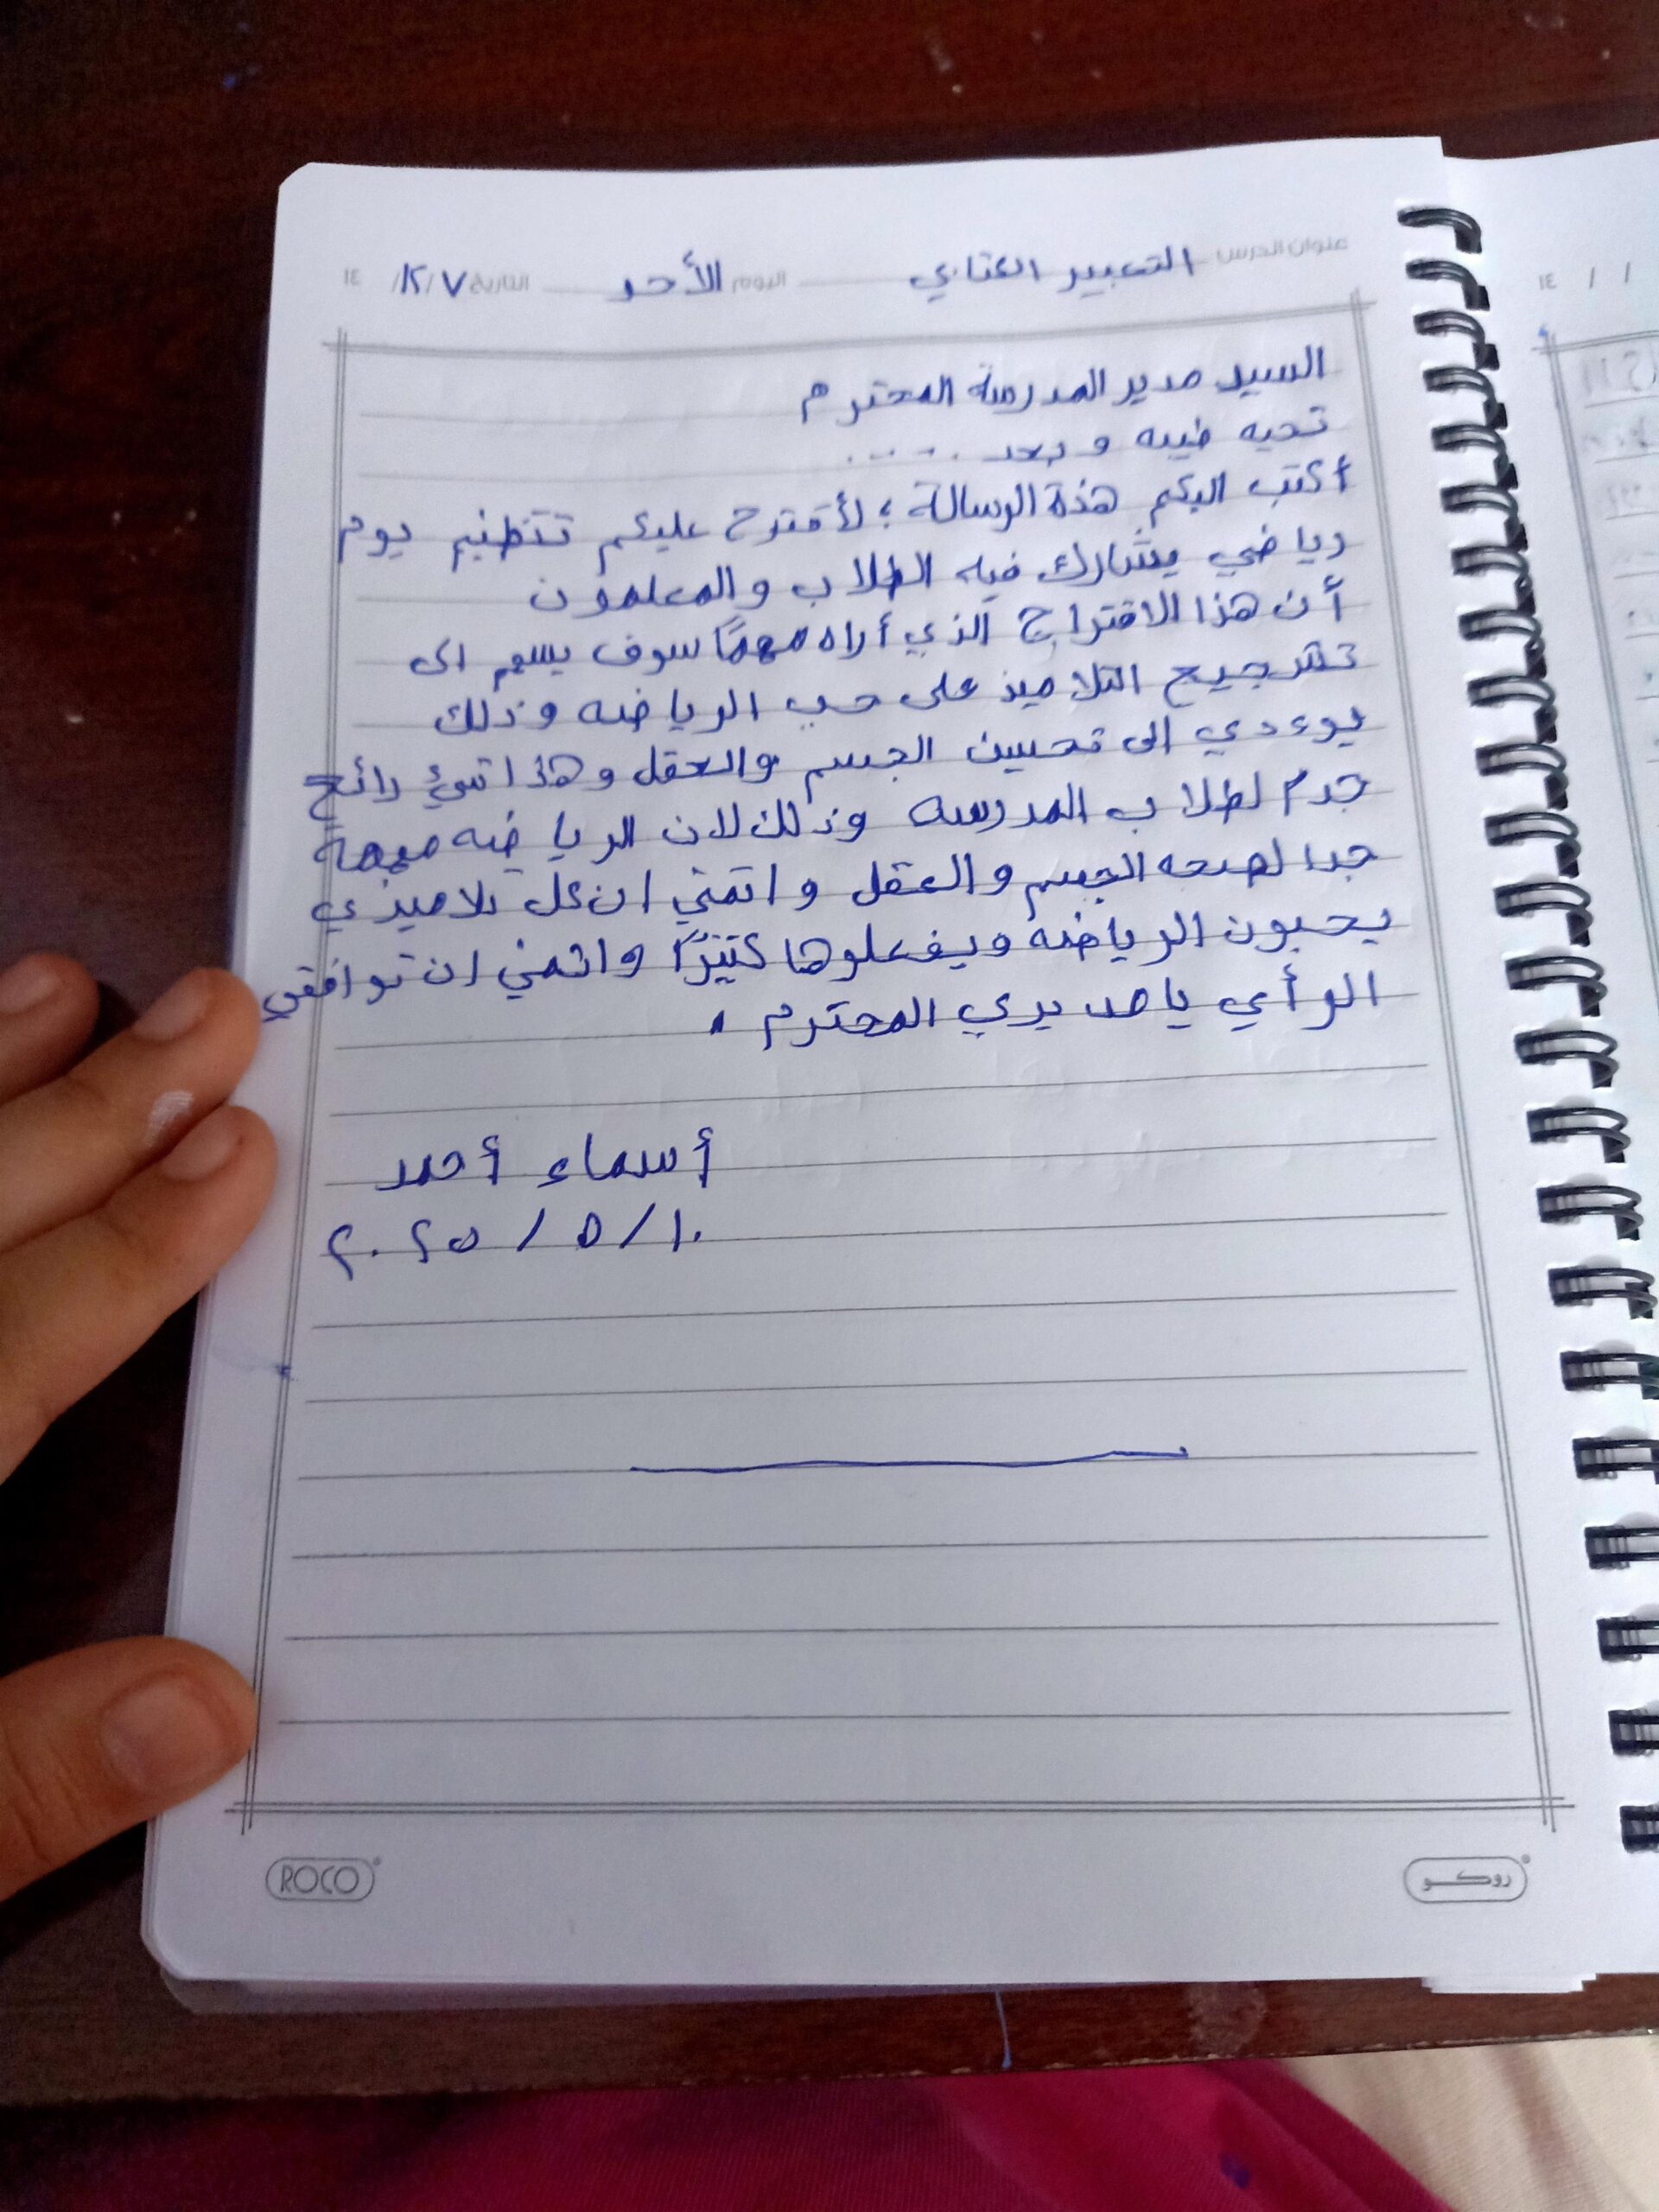 عنوان الدرس التعبير الكتابي اليوم الأحد التاريخ ٧/١٢/ ١٤
السيد مدير المدرسة المحترم
تحيه طيبه و بعد .....
أكتب اليكم هذة الرسالة ؛ لأقترح عليكم تتظيم يوم
رياضي يشارك فيه الطلاب والمعلمون
أن هذا الاقتراح الذي أراه مهمًا سوف يسهم الى
تشجيع التلاميذ على حب الرياضه وذلك
يوءدي الى تحسين الجسم والعقل وهذا شئ رائع
جدم لطلاب المدرسه وذلك لان الرياضه مهمة
جدا لصحه الجسم والعقل واتمني ان كل تلاميذي
يحبون الرياضه ويفعلوها كثيرًا واتمني ان توافقي
الرأي يا مديري المحترم .
أسماء أحمد
١٠/ ٥ / ٢٠٢٥
ROCO
روكو
/ / ١٤